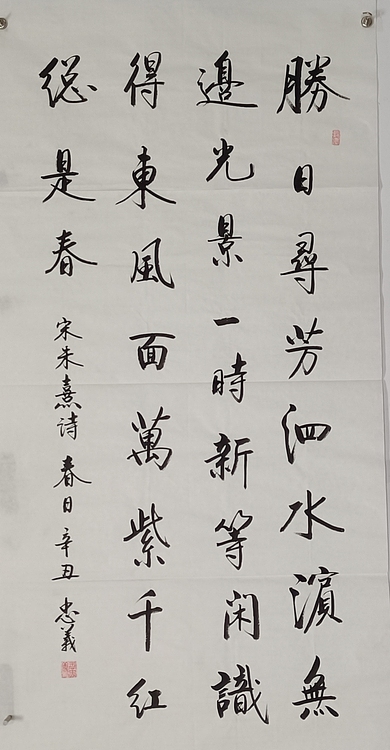 勝日尋芳泗水濱無
邊光景一時新等闲識
得東風面萬紫千红
總是春
宋朱熹诗春日辛丑忠義